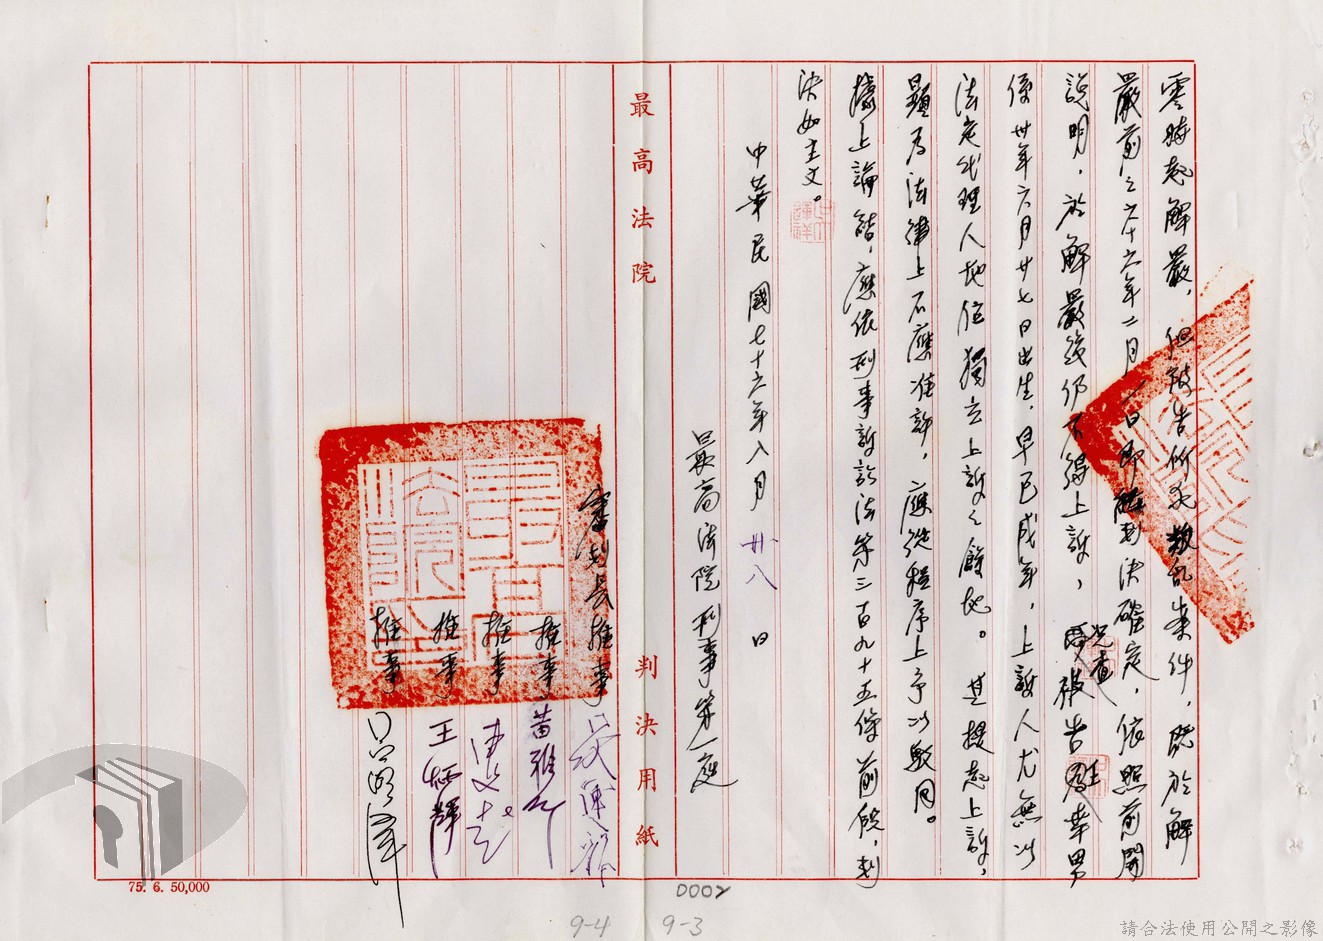 零時起解嚴，但被告所犯叛亂案件，既於解
嚴前之六十六年二月一日即判決確定，依照前開
說明，於解嚴後仍不得上訴，況查被告
係卅年六月廿七日出生，早已成年，上訴人尤無以
法定代理人地位獨立上訴之餘地。其提起上訴，
顯為法律上不應准許，應從程序上予以駁回。
據上論結，應依刑事訴訟法第三百九十五條前段，判
決如主文。
中華民國七十六年八月廿八日
最高法院刑事第一庭
審判長推事
推事
推事
推事 王
推事
最高法院
判決用紙
75. 6. 50,000
D002
9-4
9-3
請合法使用公開之影像